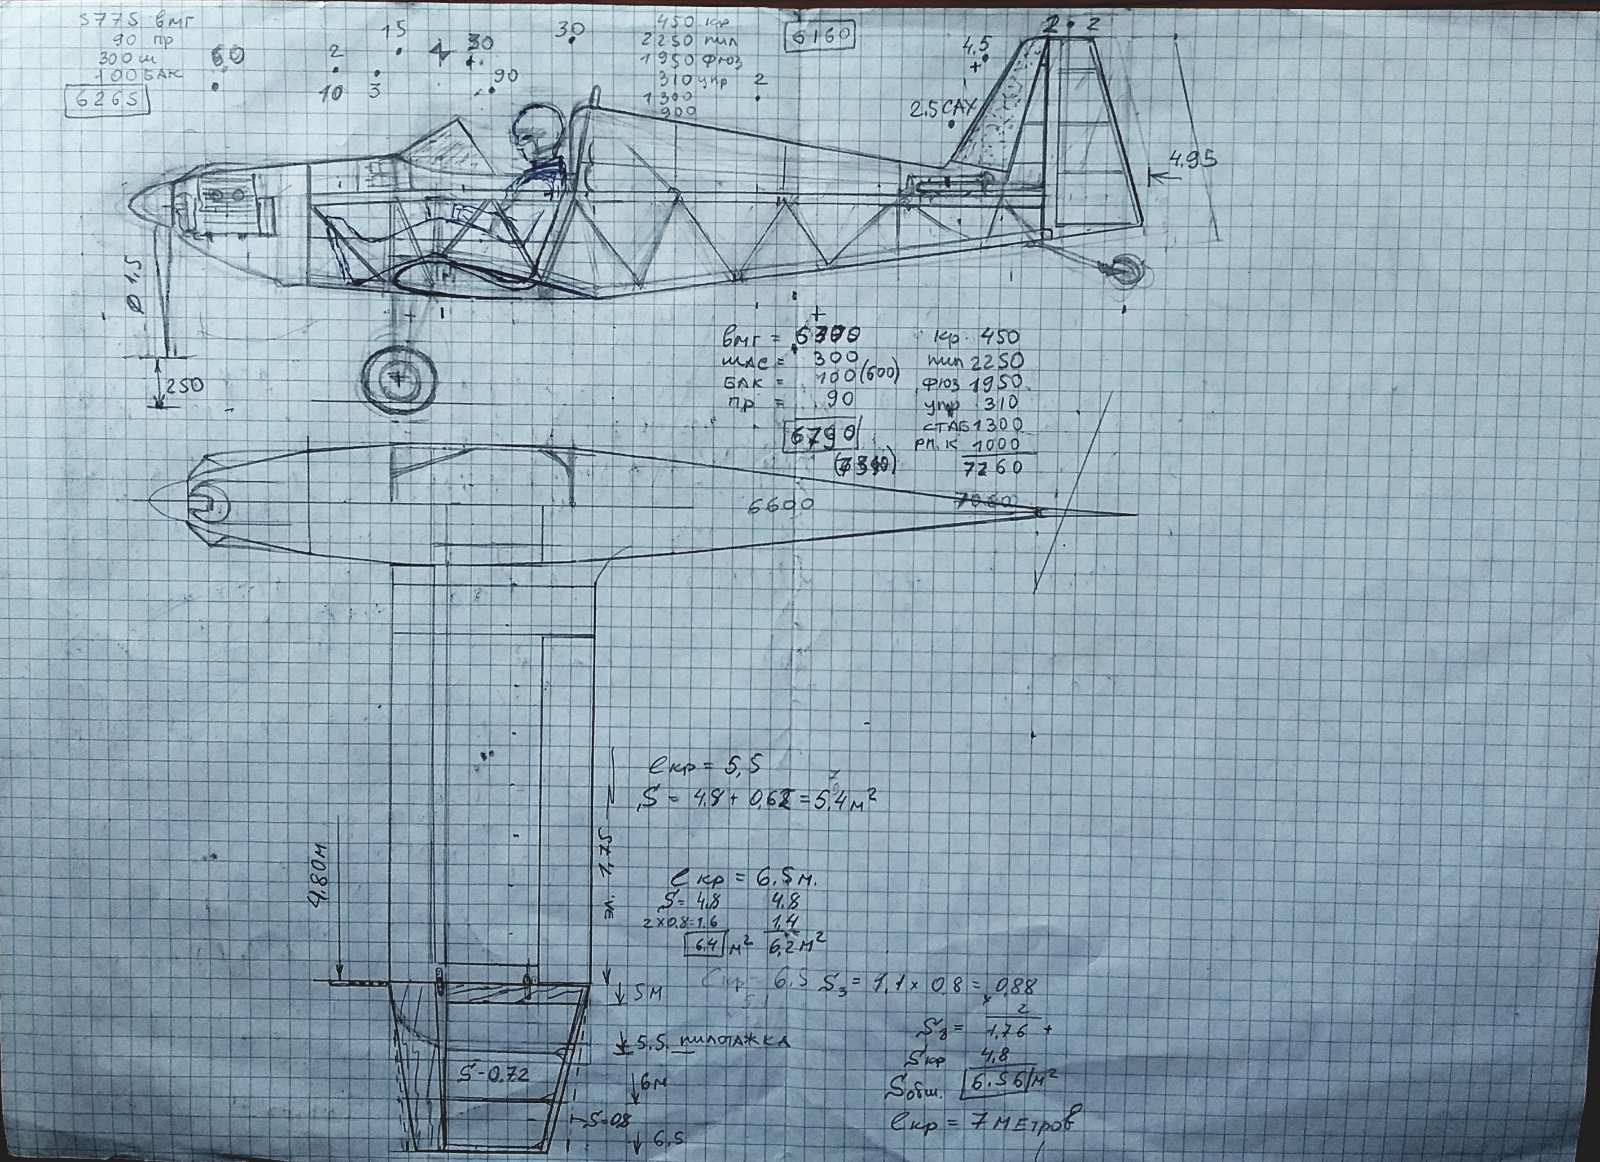 5775 вмг
90 пр
300 ш
100 БАК
6265
60
15
2
10 3
30
90
30
450 кр
2250 пил
1950 фюз
310 упр
1300
900
6160
2
4,5
2.5 САХ
2 • 2
4.95
Ø 1,5
250
вмг = 6300
шас = 300
БАК = 100 (600)
пр = 90
6790
кр. 450
пил 2250
фюз 1950
упр 310
СТАБ 1300
РП. К 1000
7260
6600
ℓкр = 5,5
S = 4.8 + 0,62 = 5,4 м²
4.80м
эл. 1,75
ℓ кр = 6.5 м.
S = 4.8 4.8
2×0.8=1.6 1,4
6.4 м² 6,2 м²
6.5 S₃ = 1,1 × 0.8 = 0,88
2
S₃ = 1,76 +
Sкр 4,8
Sобщ. 6.56 м²
ℓкр = 7 метров
5м
5.5. пилотажка
S-0.72
6м
S=08
6,5